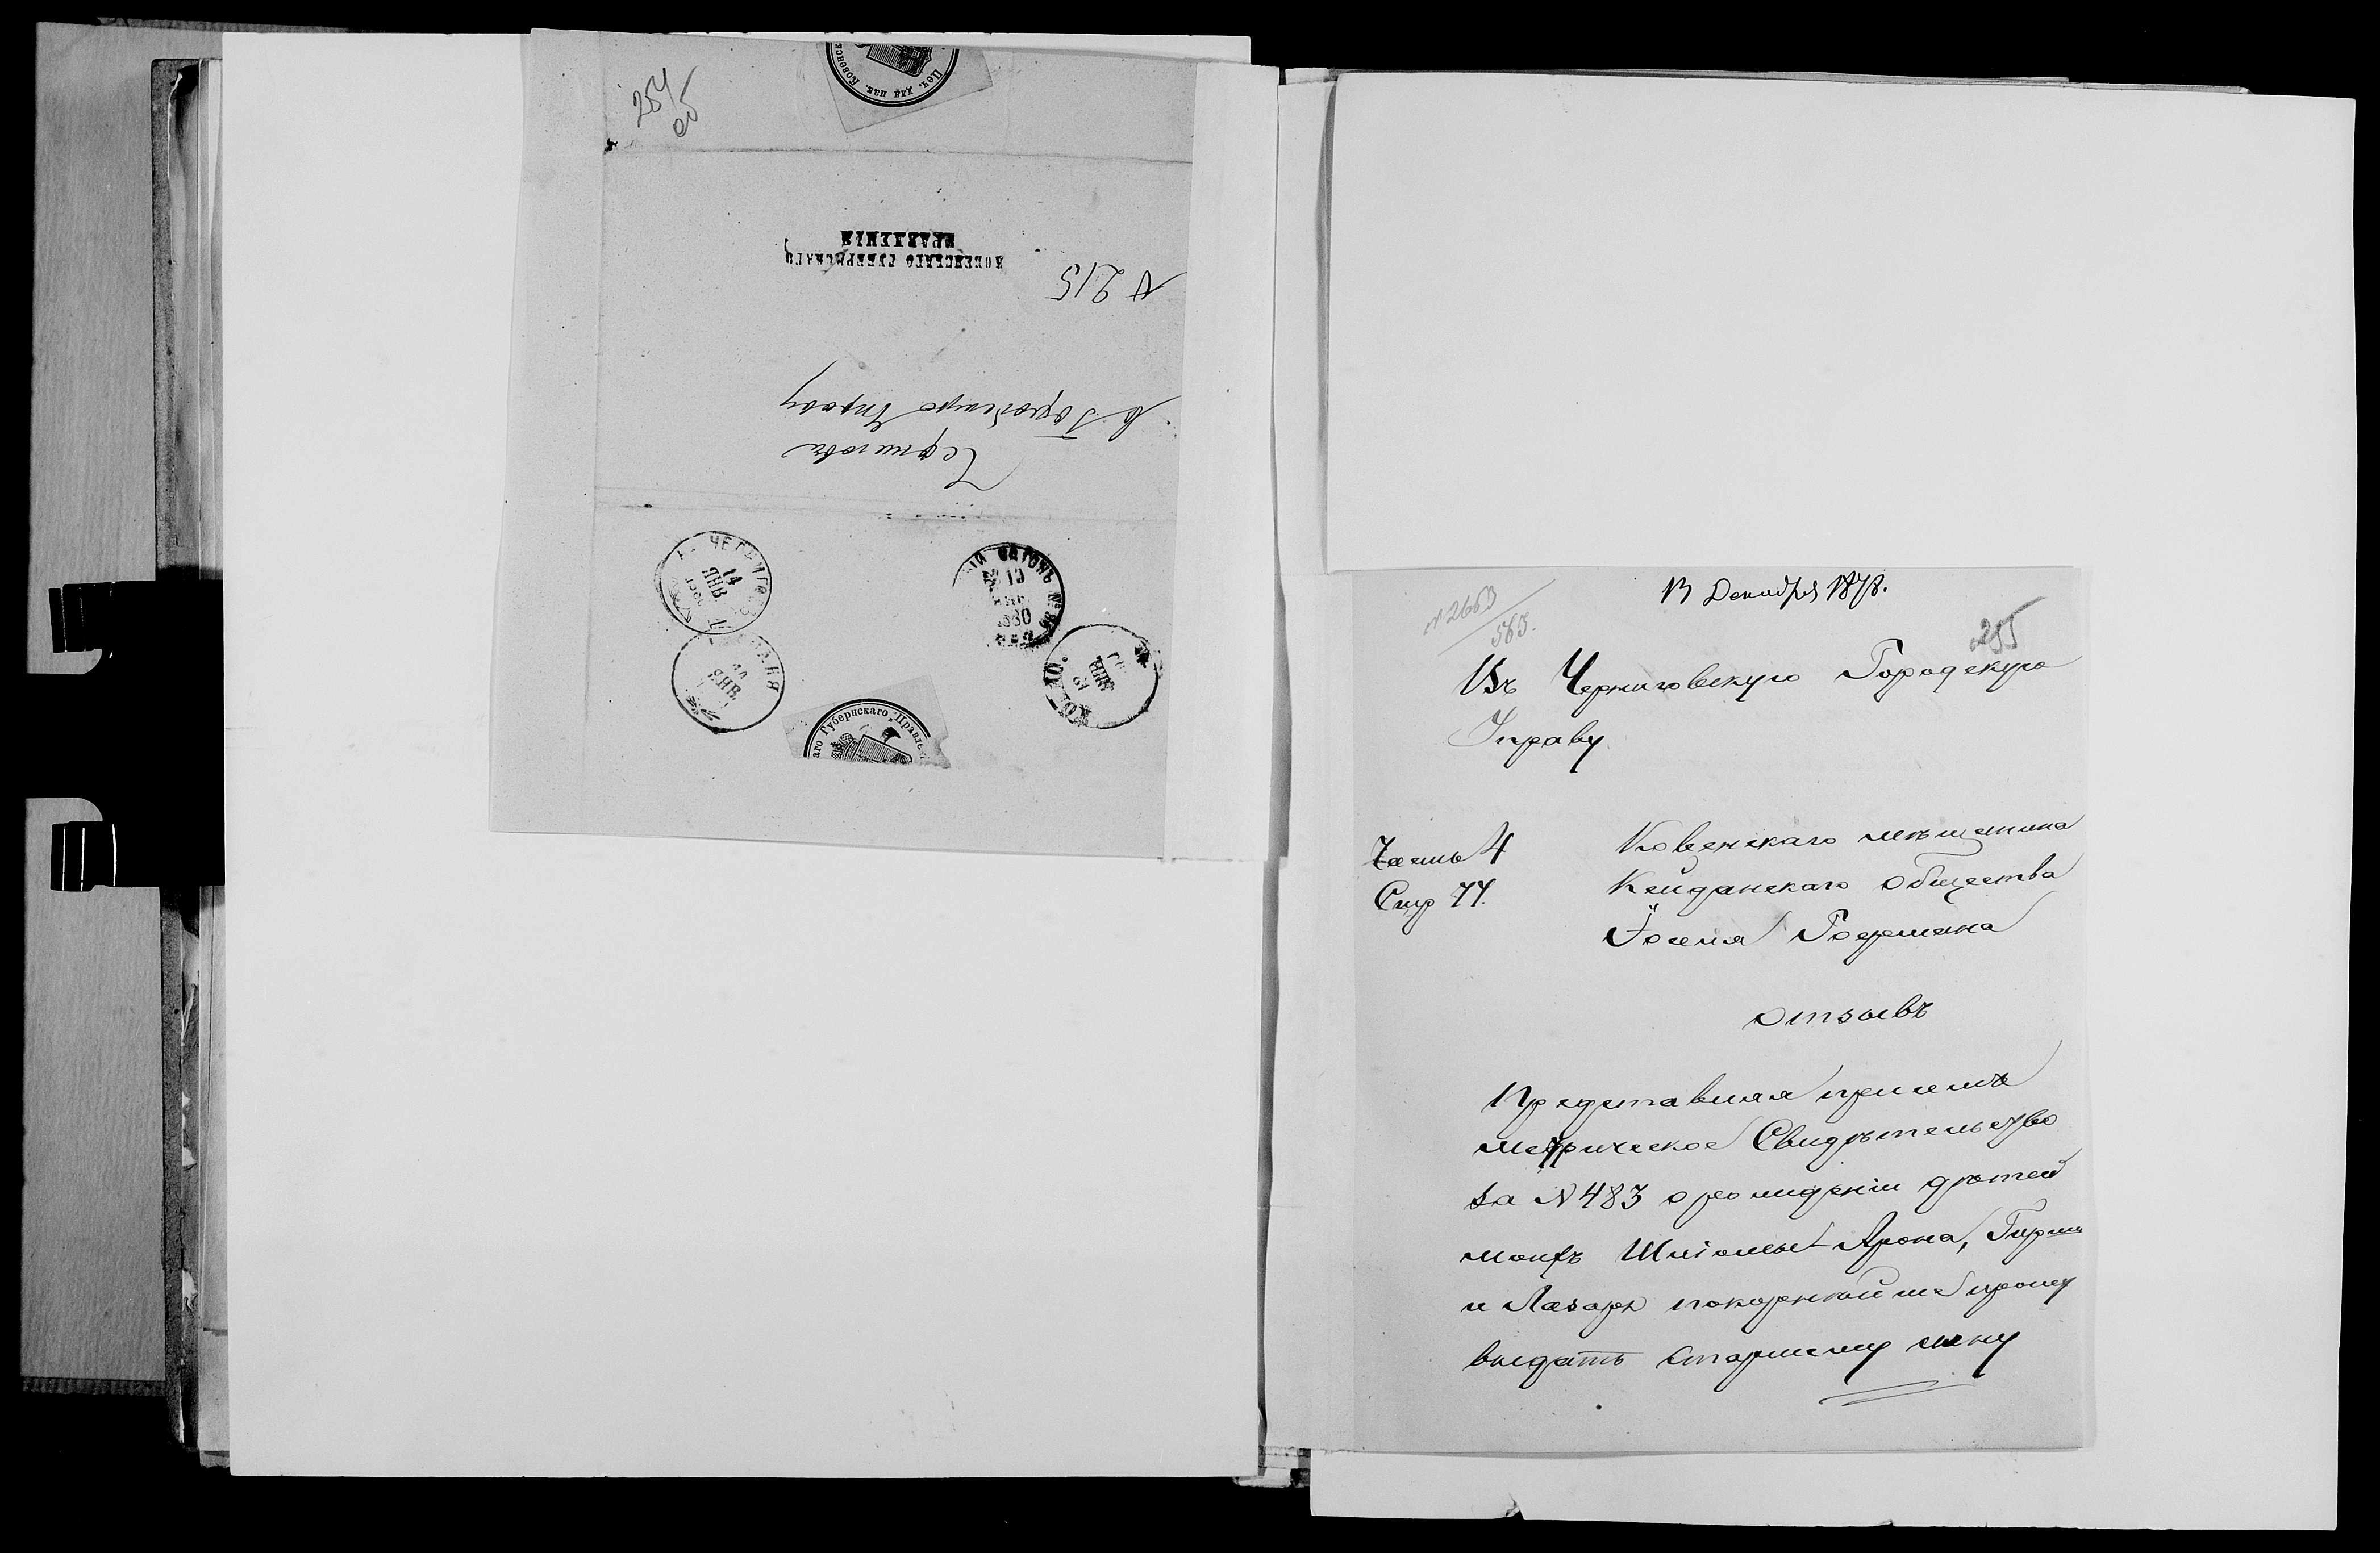 254
об
Печ. для пак. Ковенс
КОВЕНСКАГО ГУБЕРНСКАГО
ПРАВЛЕНІЯ
N 215
Черниговъ
въ Городскую Управу
14
ЯНВ
ЯНВ
аго Губернскаго Правле
N 2663
563.
13 Декабря 1878.
255
Въ Черниговскую Городскую
Управу
Часть 4
Стр 77.
Ковенскаго мѣщанина
Кейданскаго Общества
Отзывъ
Представляя при семъ
метрическое Свидѣтельство
за N 483 о рожденіи дѣтей
моихъ Шліомы-Арона, Гирша
и Лазаря покорнѣйше прошу
выдать старшему сыну